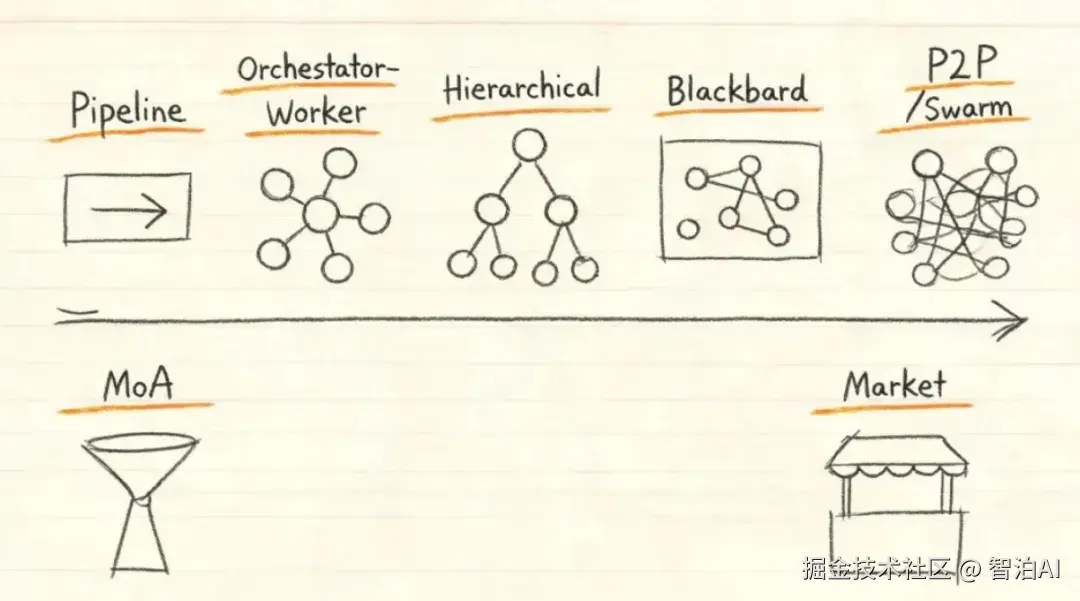 Pipeline
Orchestator-
Worker
Hierarchical
Blackbard
P2P
/Swarm
MoA
Market
掘金技术社区 @ 智泊AI